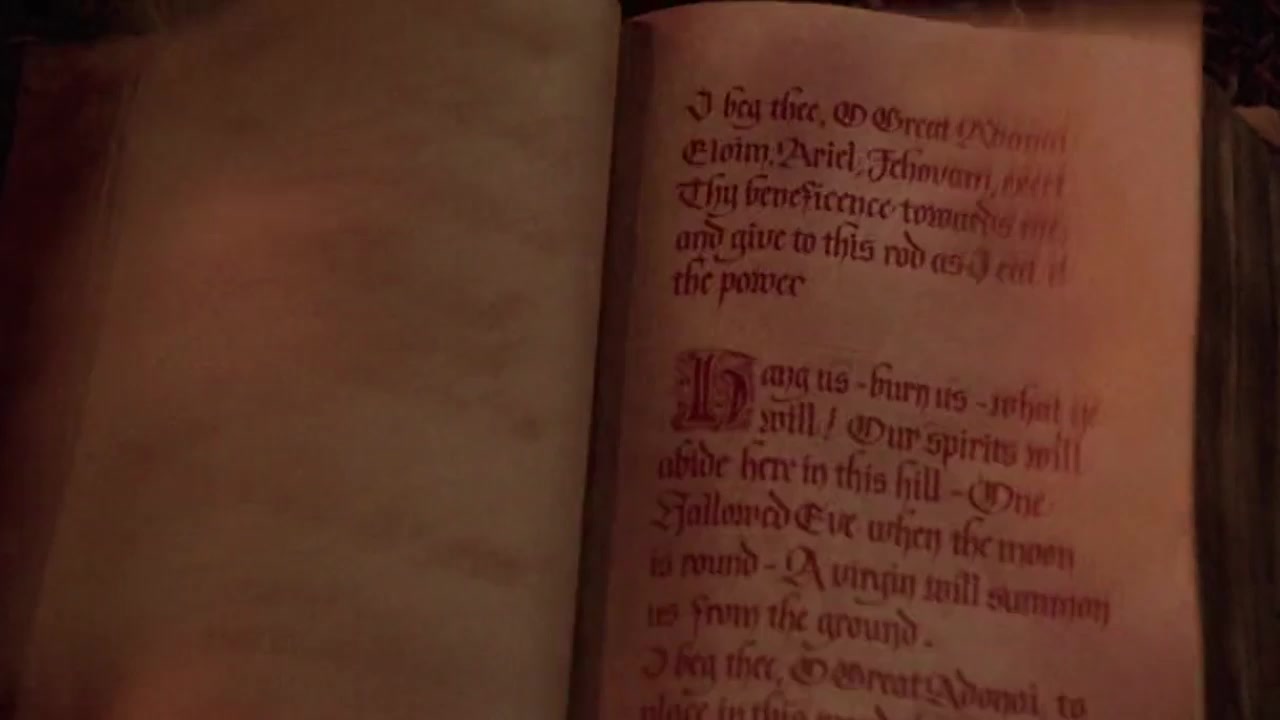 I beg thee, O Great Adonai
Eloim, Ariel, Jehovam,
Thy beneficence towards me,
and give to this rod as I cut it
the power
Hang us - burn us - what ye
will! Our spirits will
abide here in this hill - One
Hallowed Eve when the moon
is round - A virgin will summon
us from the ground.
I beg thee, O Great Adonai, to
place in this